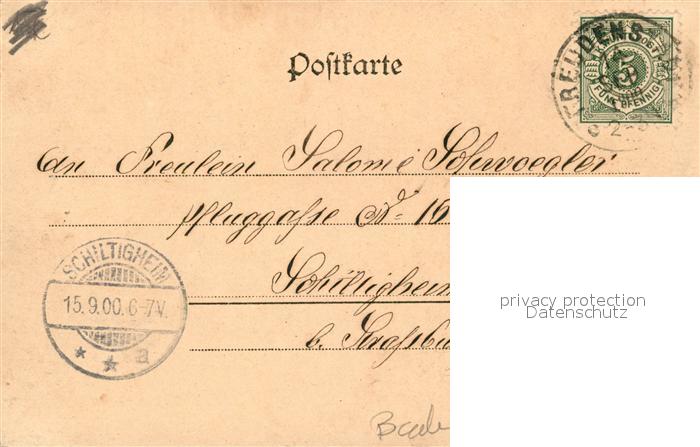 Postkarte
FREUDENS
K. WÜRTT. POST
5
FÜNF PFENNIG
2-3
An Freulein Salomé Schwoegler
Pfluggasse No 16
Schiltigheim
b. Strassbu
SCHILTIGHEIM
15.9.00.6-7V.
* * a
privacy protection
Datenschutz
Bade